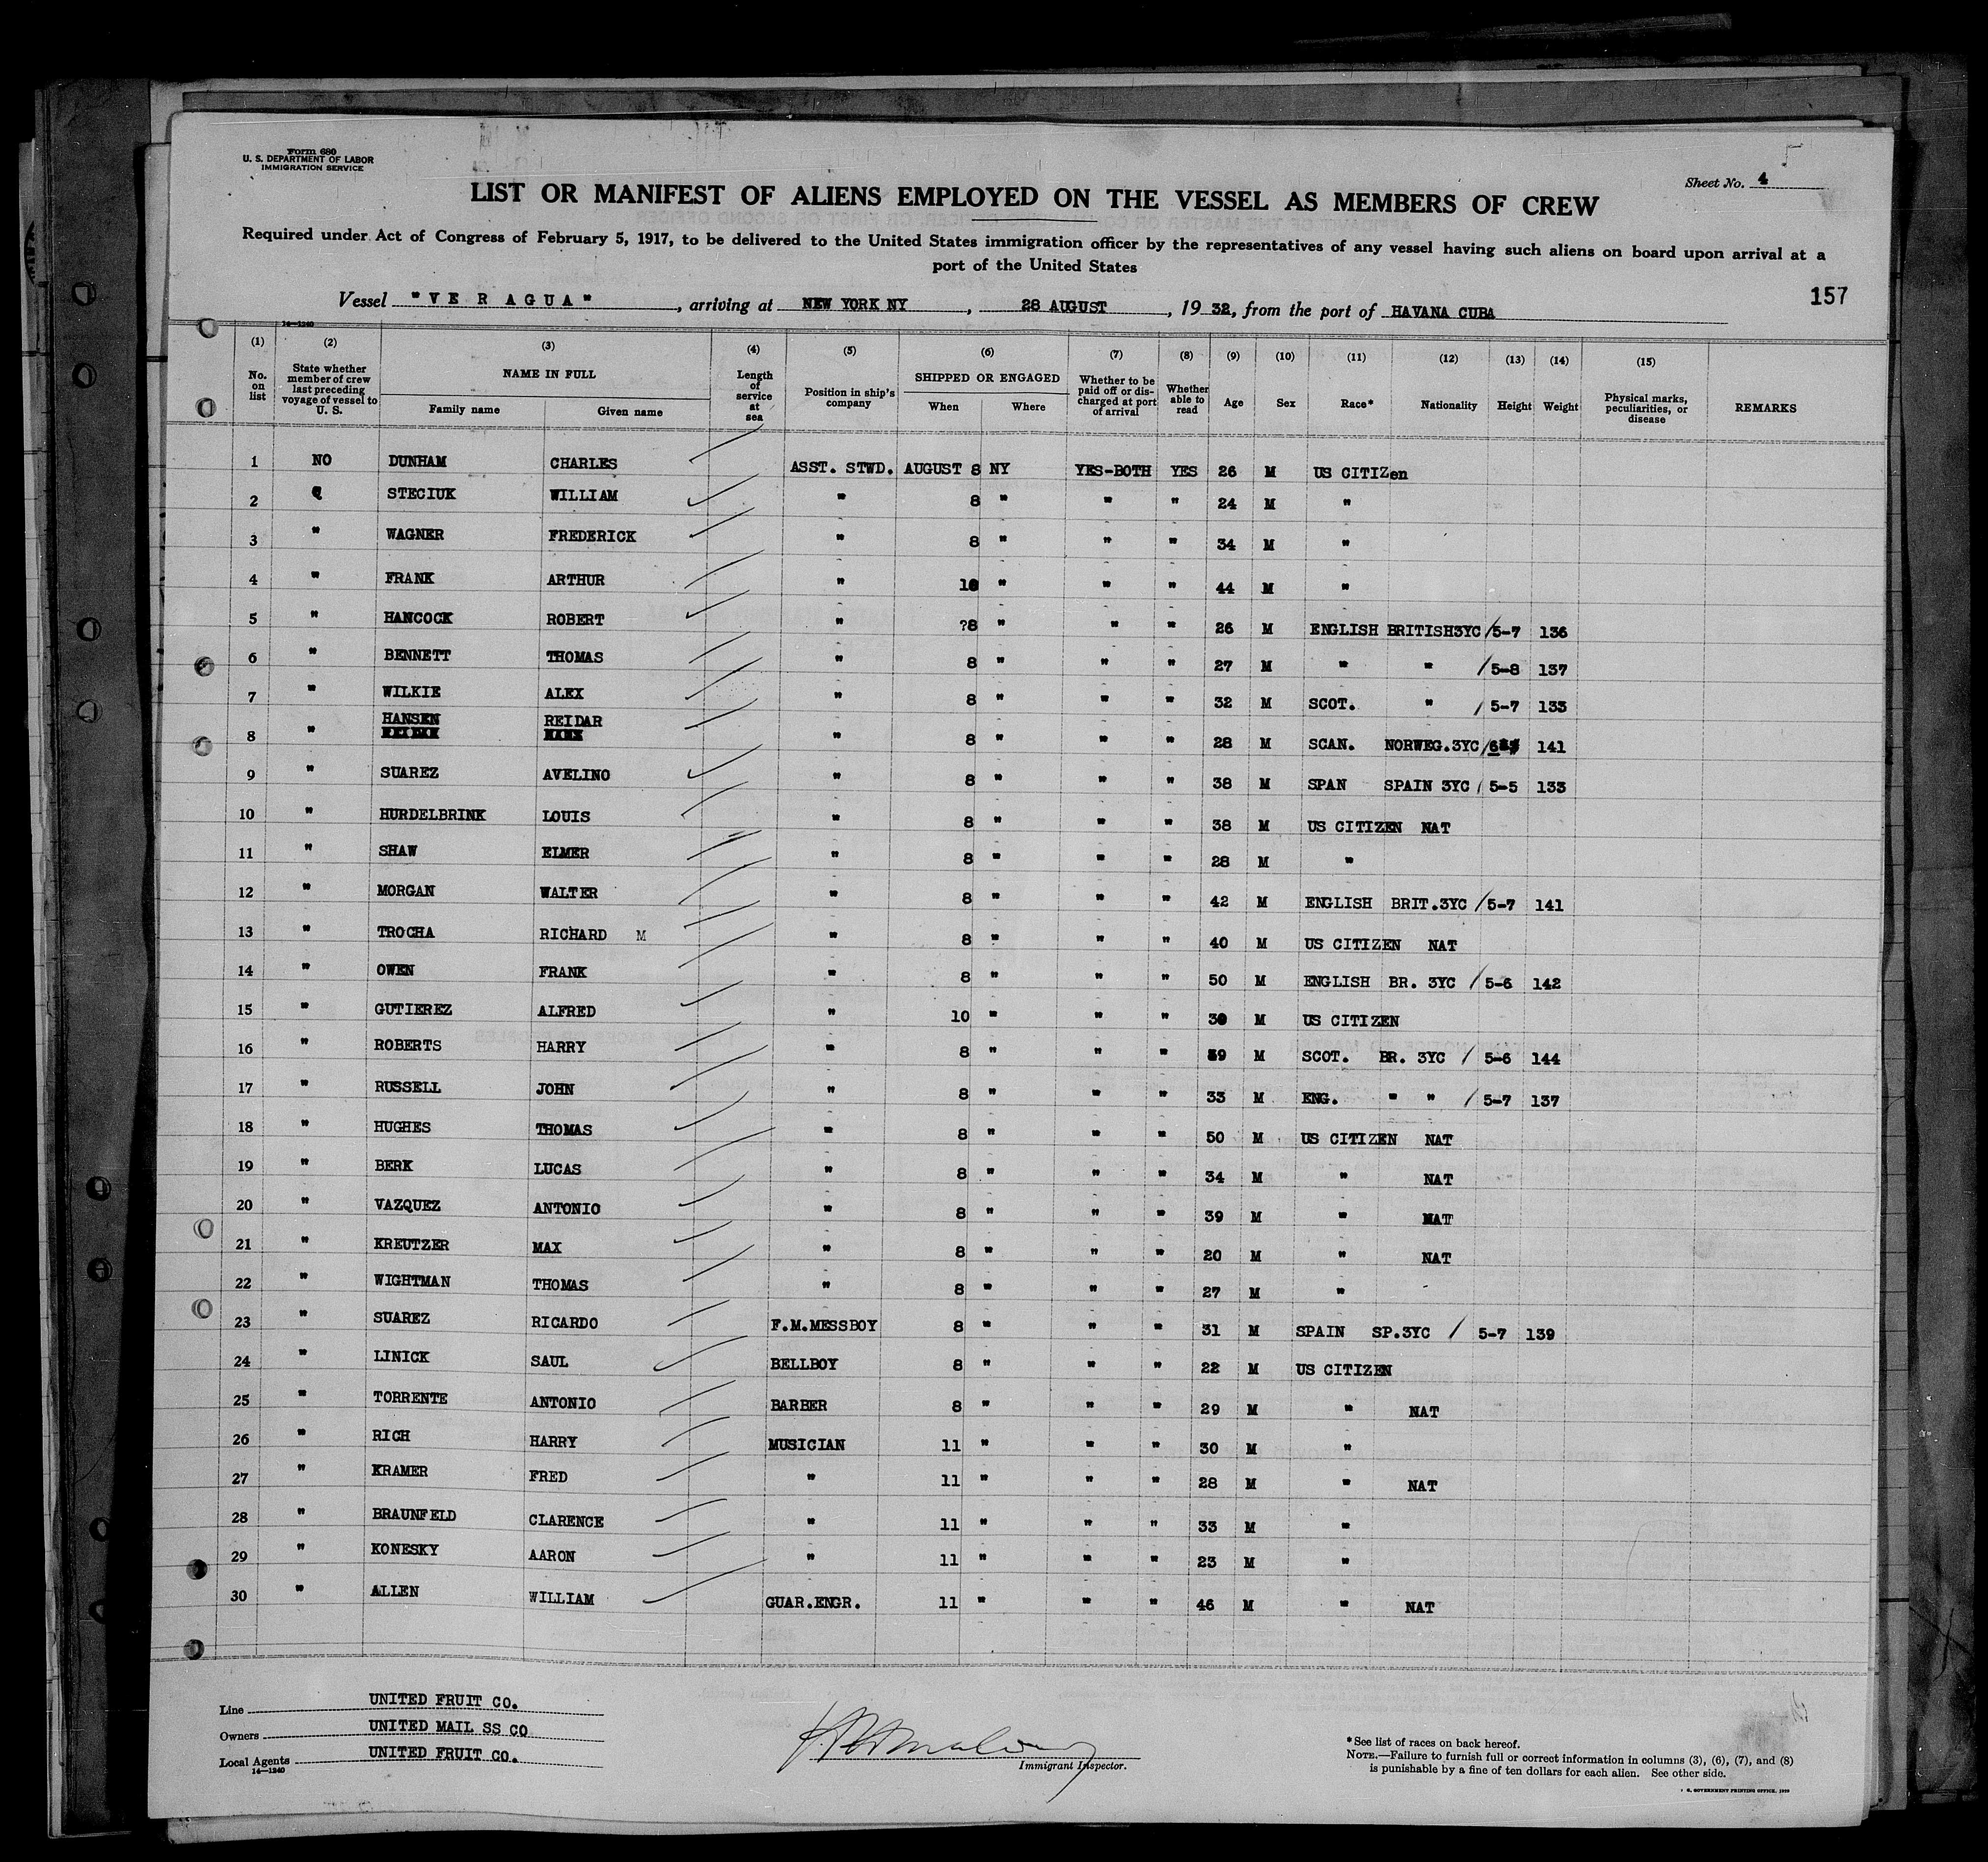 Form 680
U. S. DEPARTMENT OF LABOR
IMMIGRATION SERVICE
Sheet No. 4
5
LIST OR MANIFEST OF ALIENS EMPLOYED ON THE VESSEL AS MEMBERS OF CREW
Required under Act of Congress of February 5, 1917, to be delivered to the United States immigration officer by the representatives of any vessel having such aliens on board upon arrival at a
port of the United States
Vessel "VERAGUA", arriving at NEW YORK NY, 28 AUGUST, 1932, from the port of HAVANA CUBA
157
14—1240
(1) (2) (3) (4) (5) (6) (7) (8) (9) (10) (11) (12) (13) (14) (15)
No. on list | State whether member of crew last preceding voyage of vessel to U. S. | NAME IN FULL Family name Given name | Length of service at sea | Position in ship's company | SHIPPED OR ENGAGED When Where | Whether to be paid off or discharged at port of arrival | Whether able to read | Age | Sex | Race* | Nationality | Height | Weight | Physical marks, peculiarities, or disease | REMARKS
1 NO DUNHAM CHARLES ASST. STWD. AUGUST 8 NY YES-BOTH YES 26 M US CITIZen
2 STECIUK WILLIAM " 8 " " " 24 M "
3 " WAGNER FREDERICK " 8 " " " 34 M "
4 " FRANK ARTHUR " 10 " " " 44 M "
5 " HANCOCK ROBERT " ?8 " " " 26 M ENGLISH BRITISH3YC / 5-7 136
6 " BENNETT THOMAS " 8 " " " 27 M " " / 5-8 137
7 " WILKIE ALEX " 8 " " " 32 M SCOT. " / 5-7 133
8 " HANSEN REIDAR " 8 " " " 28 M SCAN. NORWEG.3YC / 141
9 " SUAREZ AVELINO " 8 " " " 38 M SPAN SPAIN 3YC / 5-5 133
10 " HURDELBRINK LOUIS " 8 " " " 38 M US CITIZEN NAT
11 " SHAW ELMER " 8 " " " 28 M "
12 " MORGAN WALTER " 8 " " " 42 M ENGLISH BRIT.3YC / 5-7 141
13 " TROCHA RICHARD M " 8 " " " 40 M US CITIZEN NAT
14 " OWEN FRANK " 8 " " " 50 M ENGLISH BR. 3YC / 5-6 142
15 " GUTIEREZ ALFRED " 10 " " " 30 M US CITIZEN
16 " ROBERTS HARRY " 8 " " " 39 M SCOT. BR. 3YC / 5-6 144
17 " RUSSELL JOHN " 8 " " " 33 M ENG. " " / 5-7 137
18 " HUGHES THOMAS " 8 " " " 50 M US CITIZEN NAT
19 " BERK LUCAS " 8 " " " 34 M " NAT
20 " VAZQUEZ ANTONIO " 8 " " " 39 M " NAT
21 " KREUTZER MAX " 8 " " " 20 M " NAT
22 " WIGHTMAN THOMAS " 8 " " " 27 M "
23 " SUAREZ RICARDO F.M.MESSBOY 8 " " " 31 M SPAIN SP.3YC / 5-7 139
24 " LINICK SAUL BELLBOY 8 " " " 22 M US CITIZEN
25 " TORRENTE ANTONIO BARBER 8 " " " 29 M " NAT
26 " RICH HARRY MUSICIAN 11 " " " 30 M "
27 " KRAMER FRED " 11 " " " 28 M " NAT
28 " BRAUNFELD CLARENCE " 11 " " " 33 M "
29 " KONESKY AARON " 11 " " " 23 M "
30 " ALLEN WILLIAM GUAR.ENGR. 11 " " " 46 M " NAT
Line UNITED FRUIT CO.
Owners UNITED MAIL SS CO
Local Agents UNITED FRUIT CO.
14—1240
Immigrant Inspector.
*See list of races on back hereof.
NOTE.—Failure to furnish full or correct information in columns (3), (6), (7), and (8)
is punishable by a fine of ten dollars for each alien. See other side.
GOVERNMENT PRINTING OFFICE, 1929